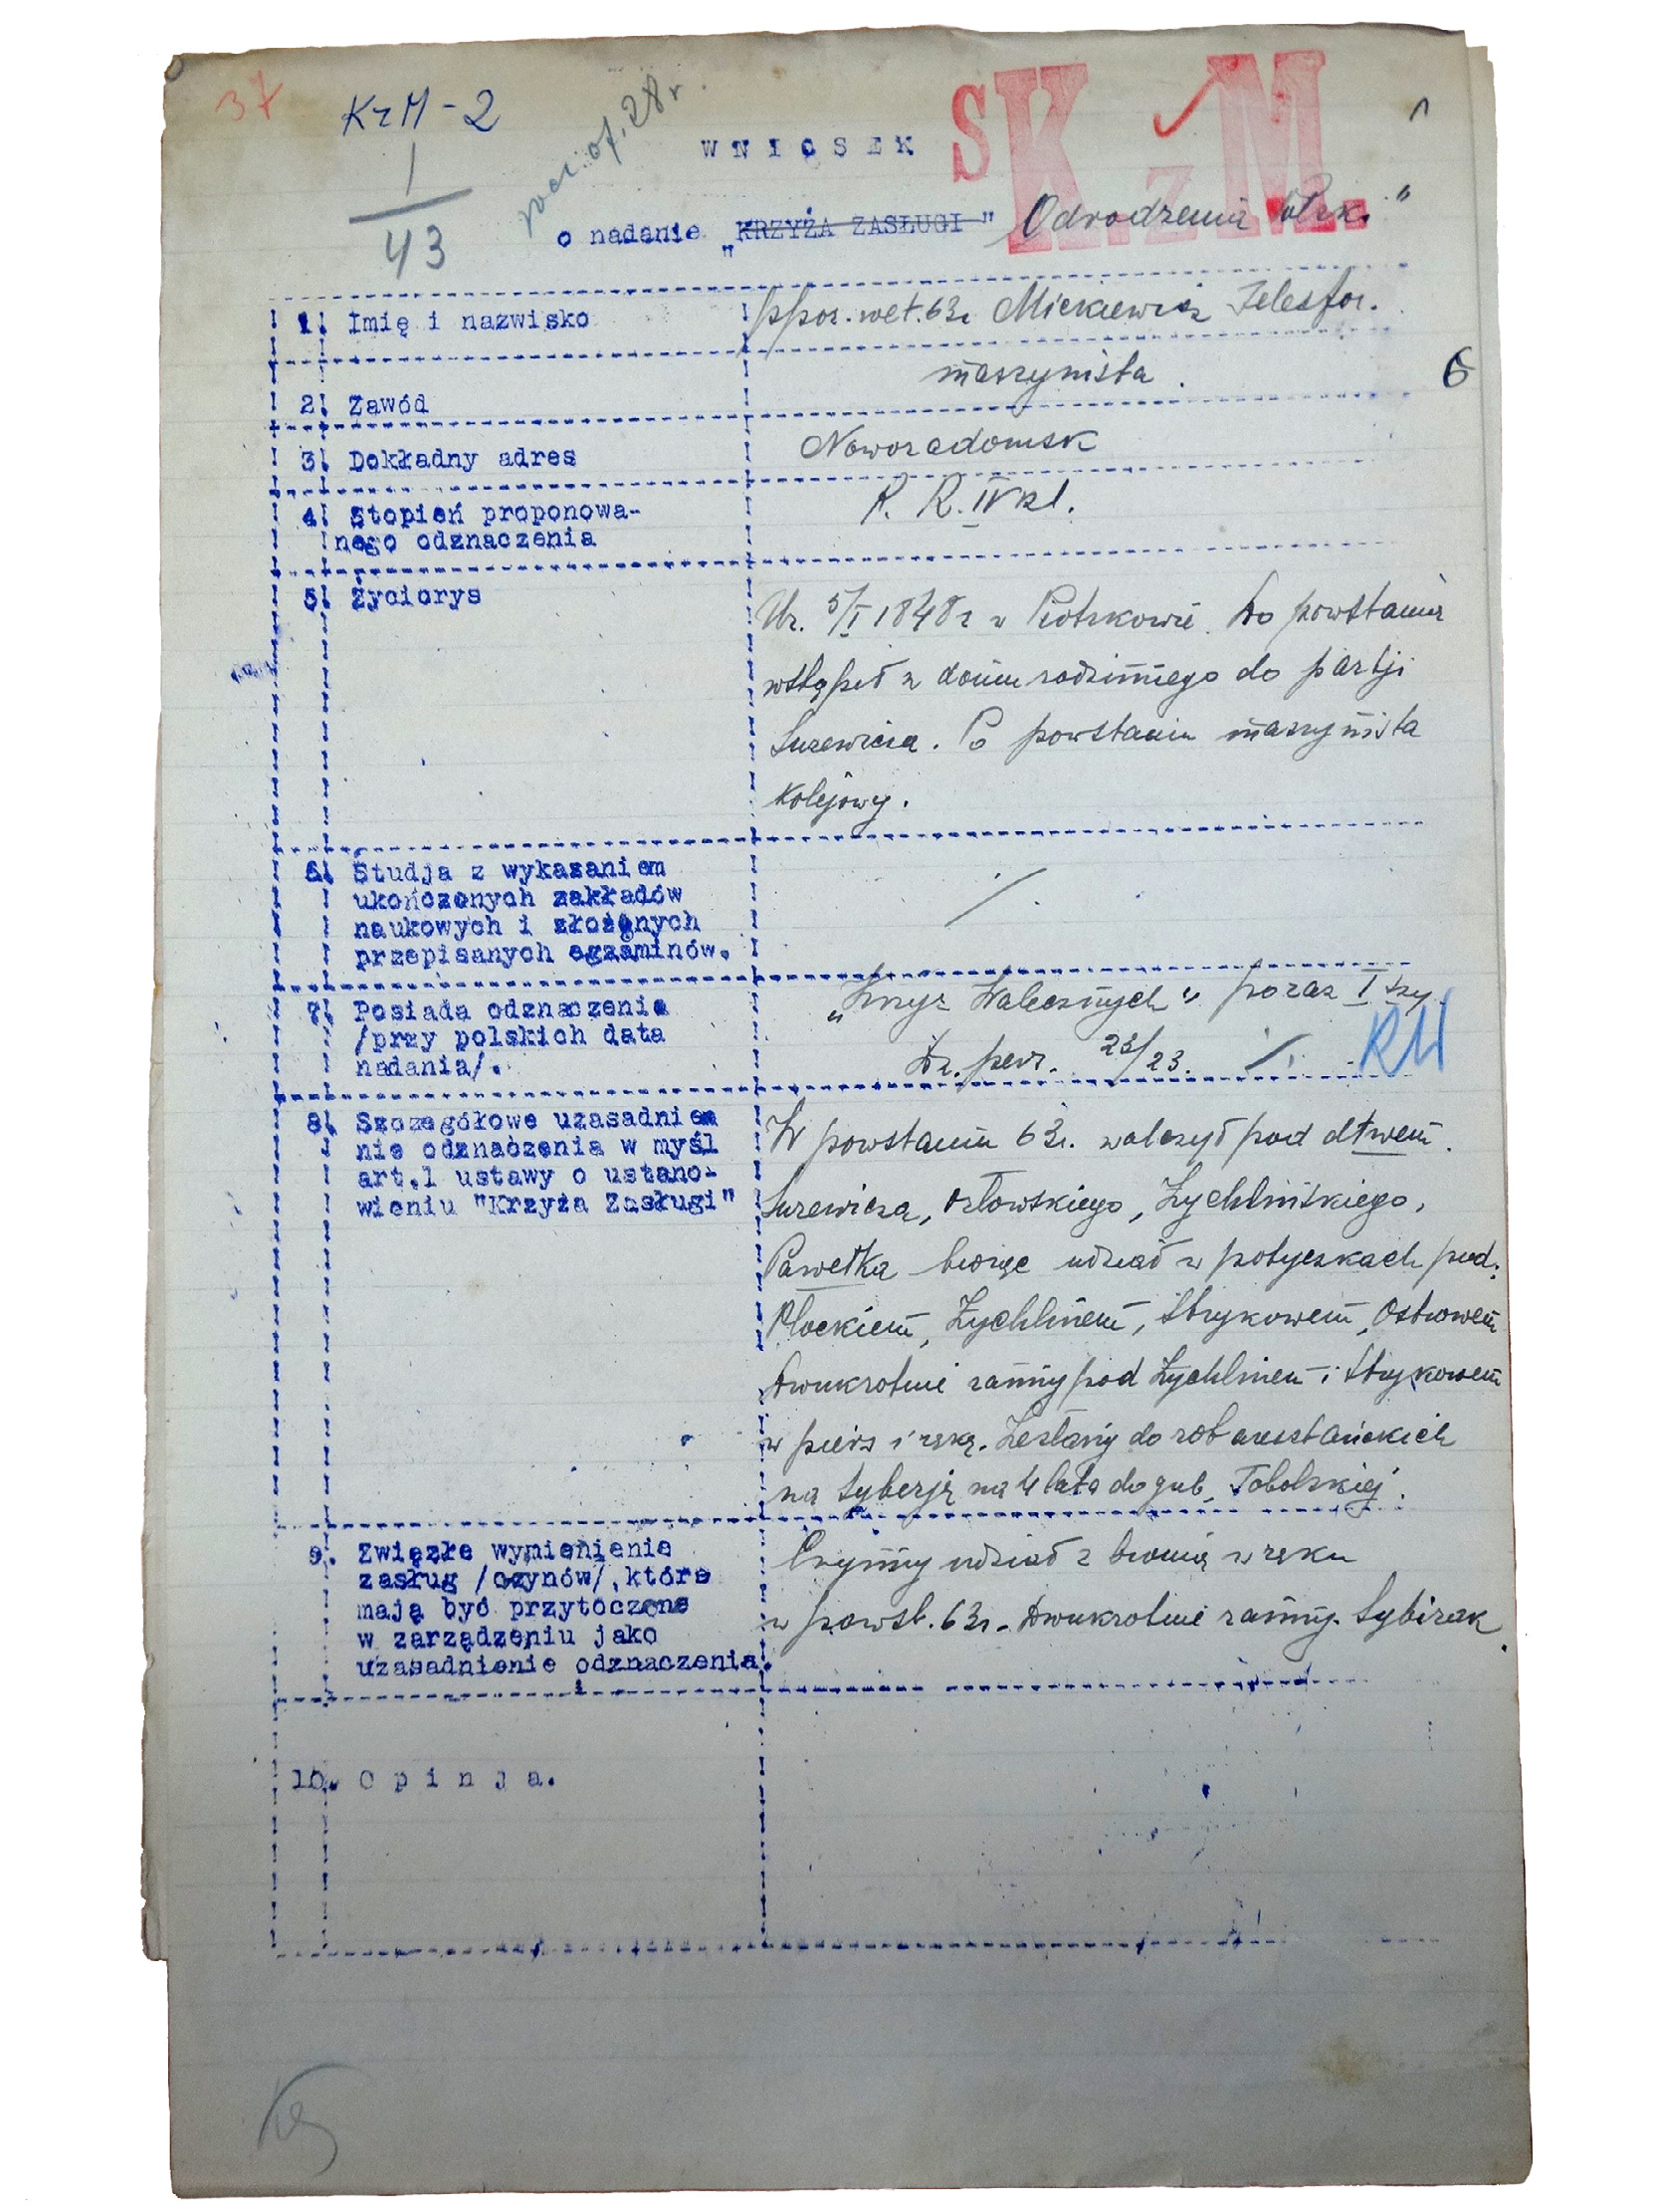 37
KrM-2
1
43
of. 28 r.
WNIOSEK
SK.Z M.
o nadanie „KRZYŻA ZASŁUGI" Odrodzenia Polsk."
1. Imię i nazwisko
ppor. wet. 63r Mickiewicz Telesfor.
2. Zawód
maszynista.
6
3. Dokładny adres
Noworadomsk
4. Stopień proponowa-
nego odznaczenia
P. R. IV kl.
5. Życiorys
Ur. 5/I 1848 r w Piotrkowie. Do powstania
wstąpił z domu rodzinnego do partji
Surewicza. Po powstaniu maszynista
kolejowy.
6. Studja z wykazaniem
ukończonych zakładów
naukowych i złożonych
przepisanych egzaminów.
7. Posiada odznaczenia
/przy polskich data
nadania/.
„Krzyż Walecznych" poraz I szy
Dz. pers. 23/23. KM
8. Szczegółowe uzasadnie
nie odznaczenia w myśl
art.1 ustawy o ustano-
wieniu "Krzyża Zasługi"
W powstaniu 63r. walczył pod dtwem.
Surewicza, Orłowskiego, Żychlińskiego,
Pawełka biorąc udział w potyczkach pod:
Płockiem, Żychlinem, Strykowem, Ostrowem
Dwukrotnie ranny pod Żychlinem i Strykowem
w pierś i rękę. Zesłany do rob aresztanckich
na Syberję na 4 lata do gub. Tobolskiej.
9. Związłe wymienienie
zasług /czynów/, które
mają być przytoczone
w zarządzeniu jako
uzasadnienie odznaczenia.
Czynny udział z bronią w ręku
w powst. 63r. Dwukrotnie ranny. Sybirak.
10. Opinja.